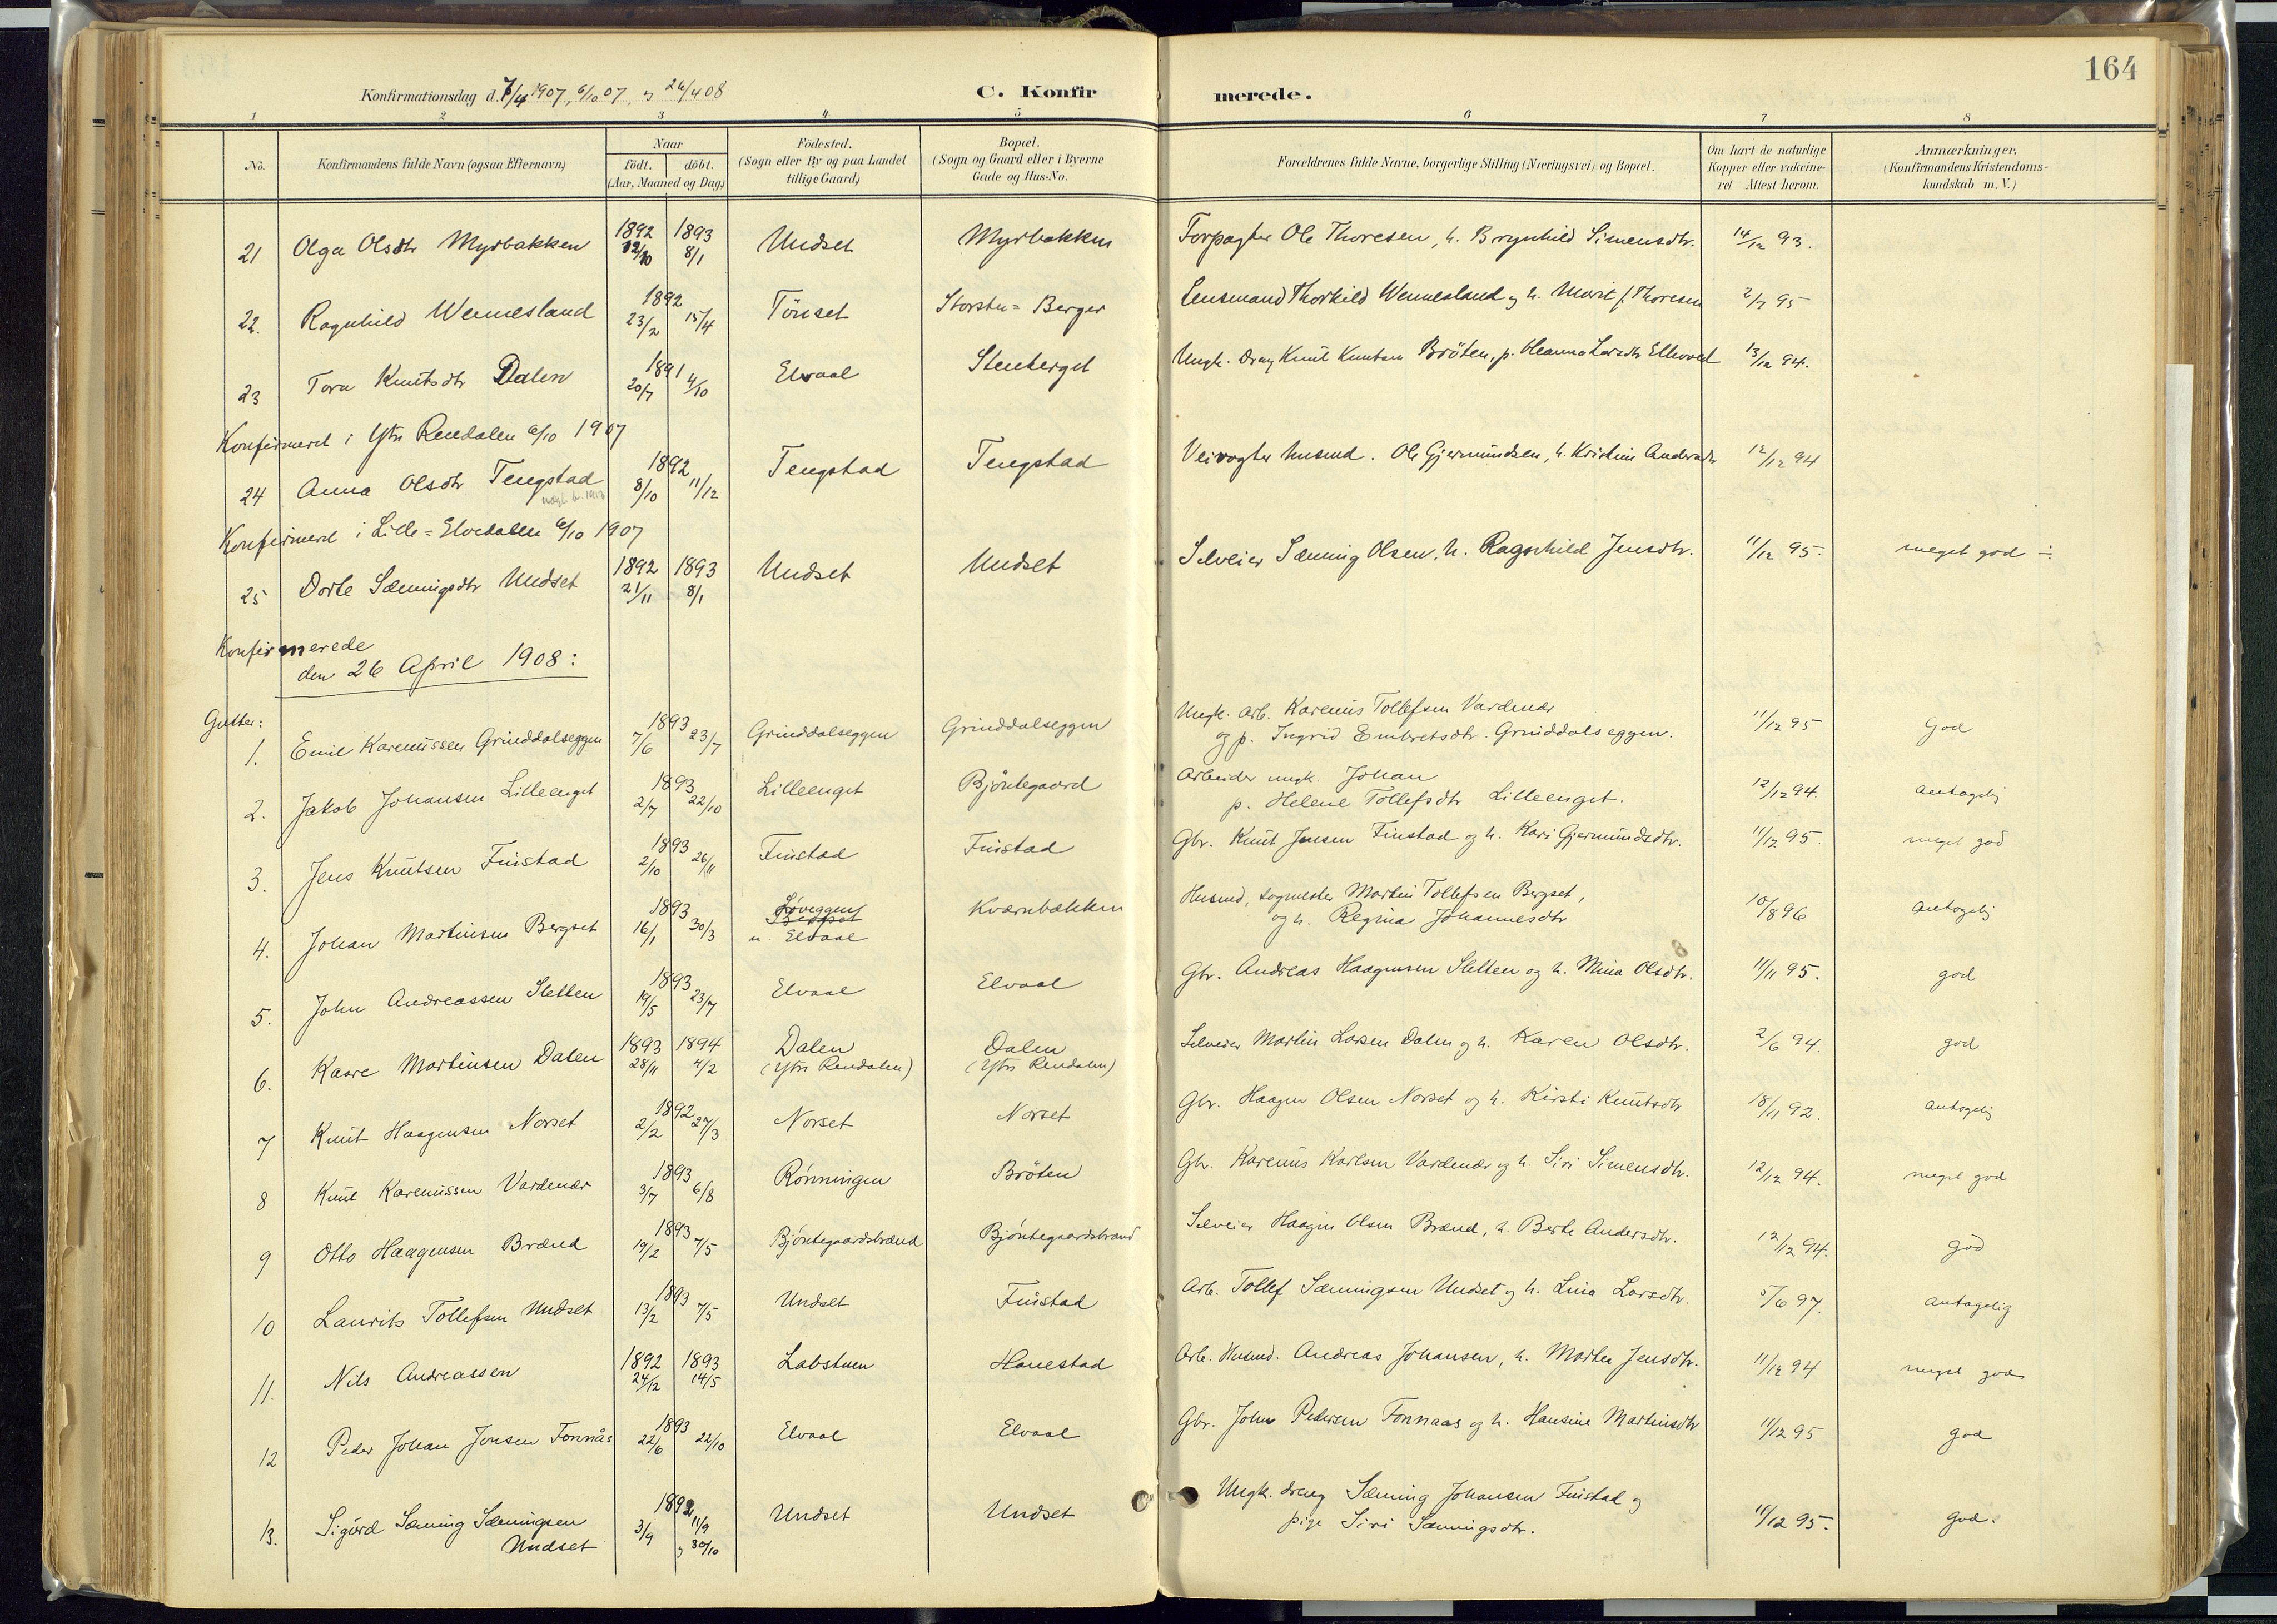 164
Konfirmationsdag d. 7/4 1907, 6/10 07, og 26/4 08
C. Konfirmerede.
1 2 3 4 5 6 7 8
No.
Konfirmandens fulde Navn (ogsaa Efternavn)
Naar
födt. döbt.
(Aar, Maaned og Dag.)
Födested.
(Sogn eller By og paa Landet
tillige Gaard)
Bopæl.
(Sogn og Gaard eller i Byerne
Gade og Hus-No.
Forældrenes fulde Navne, borgerlige Stilling (Næringsvei) og Bopæl.
Om havt de naturlige
Kopper eller vakcine-
ret Attest herom.
Anmærkninger.
(Konfirmandens Kristendoms-
kundskab m. V.)
21 Olga Olsdtr Myrbakken 1892 12/10 1893 8/1 Undset Myrbakken Forpagter Ole Thoresen, h. Brynhild Simensdtr. 14/12 93.
22. Ragnhild Wennesland 1892 23/2 15/4 Tönset Storsten= Berger Lensmand Thorkild Wennesland og h. Marit f. Thoresen 2/7 95
23 Tora Knutsdtr Dalen 1891 20/7 4/10 Elvaal Stenberget Ungk. Dreng Knut Knutsen Bröten, p. Larsdtr 13/12 94.
Konfirmeret i Ytre Rendalen 6/10 1907
24 Anna Olsdtr Tengstad 1892 8/10 11/12 Tengstad Tengstad Veivogter husmd. Ole Gjermundsen, h. Kristine Andersdtr 12/12 94
Konfirmeret i Lille=Elvedalen 6/10 1907
25 Dorte Sæmingsdtr Undset 1892 21/11 1893 8/1 Undset Undset Selveier Sæming Olsen, h. Ragnhild Jensdtr. 11/12 95. meget god ÷
Konfirmerede
den 26 April 1908:
Gutter:
1. Emil Kareniussen Grinddalseggen 1893 7/6 23/7 Grinddalseggen Grinddalseggen Ungk. arb. Karenus Tollefsen Vardenær
og p. Ingrid Embretsdtr. Grinddalseggen. 11/12 95 God
2. Jakob Johansen Lilleenget 1893 2/7 22/10 Lilleenget Bjöntegaard Arbeider ungk. Johan
p. Helene Tollefsdtr Lilleenget. 12/12 94. antagelig
3. Jens Knutsen Finstad 1893 2/10 26/11 Finstad Finstad Gbr. Knut Jensen Finstad og h. Kari Gjermundsdtr. 11/12 95. meget god
4. Johan Martinsen Bergset 1893 16/1 30/3 Löveggen
Bergset
n. Elvaal Kværnbækken Husmd, Martin Tollefsen Bergset,
og h. Regina Johannesdtr 10/8 96 antagelig
5. John Andreassen Sletten 1893 19/5 23/7 Elvaal Elvaal Gbr. Andreas Haagensen Sletten og h. Mina Olsdtr. 11/11 95. god
6. Kaare Martinsen Dalen 1893 28/11 1894 4/2 Dalen
(Ytre Rendalen) Dalen
(Ytre Rendalen) Selveier Martin Larsen Dalen og h. Karen Olsdtr. 2/6 94. god
7 Knut Haagensen Norset 1892 2/2 27/3 Norset Norset Gbr. Haagen Olsen Norset og h. Kirsti Knutsdtr 18/11 92. antagelig
8 Knut Kareniussen Vardenær 1893 3/7 6/8 Rönningen Bröten Gbr. Karenius Karlsen Vardenær og h. Siri Simensdtr. 12/12 94. meget god
9 Otto Haagensen Brænd 1893 19/2 7/5 Bjöntegaardsbrænd Bjöntegaardsbrænd Selveier Haagen Olsen Brænd, h. Berte Andersdtr. 12/12 94. god
10 Laurits Tollefsen Undset 1893 13/2 7/5 Undset Finstad Arb. Tollef Sæmingsen Undset og h. Lina Larsdtr. 5/6 97. antagelig
11. Nils Andreassen 1892 24/12 1893 14/5 Labstuen Hanestad Arb. Husmd. Andreas Johansen, h. Martea Jensdtr. 11/12 94 meget god
12 Peder Johan Jonsen Fonnås 1893 22/6 22/10 Elvaal Elvaal Gbr. John Pedersen Fonnaas og h. Hansine Martinsdtr 11/12 95 god
13. Sigurd Sæming Sæmingsen
Undset 1892 3/9 11/9
og 30/10 Undset Undset Ungk. dreng Sæming Johansen Finstad og
pige Siri Sæmingsdtr. 11/12 95. god.